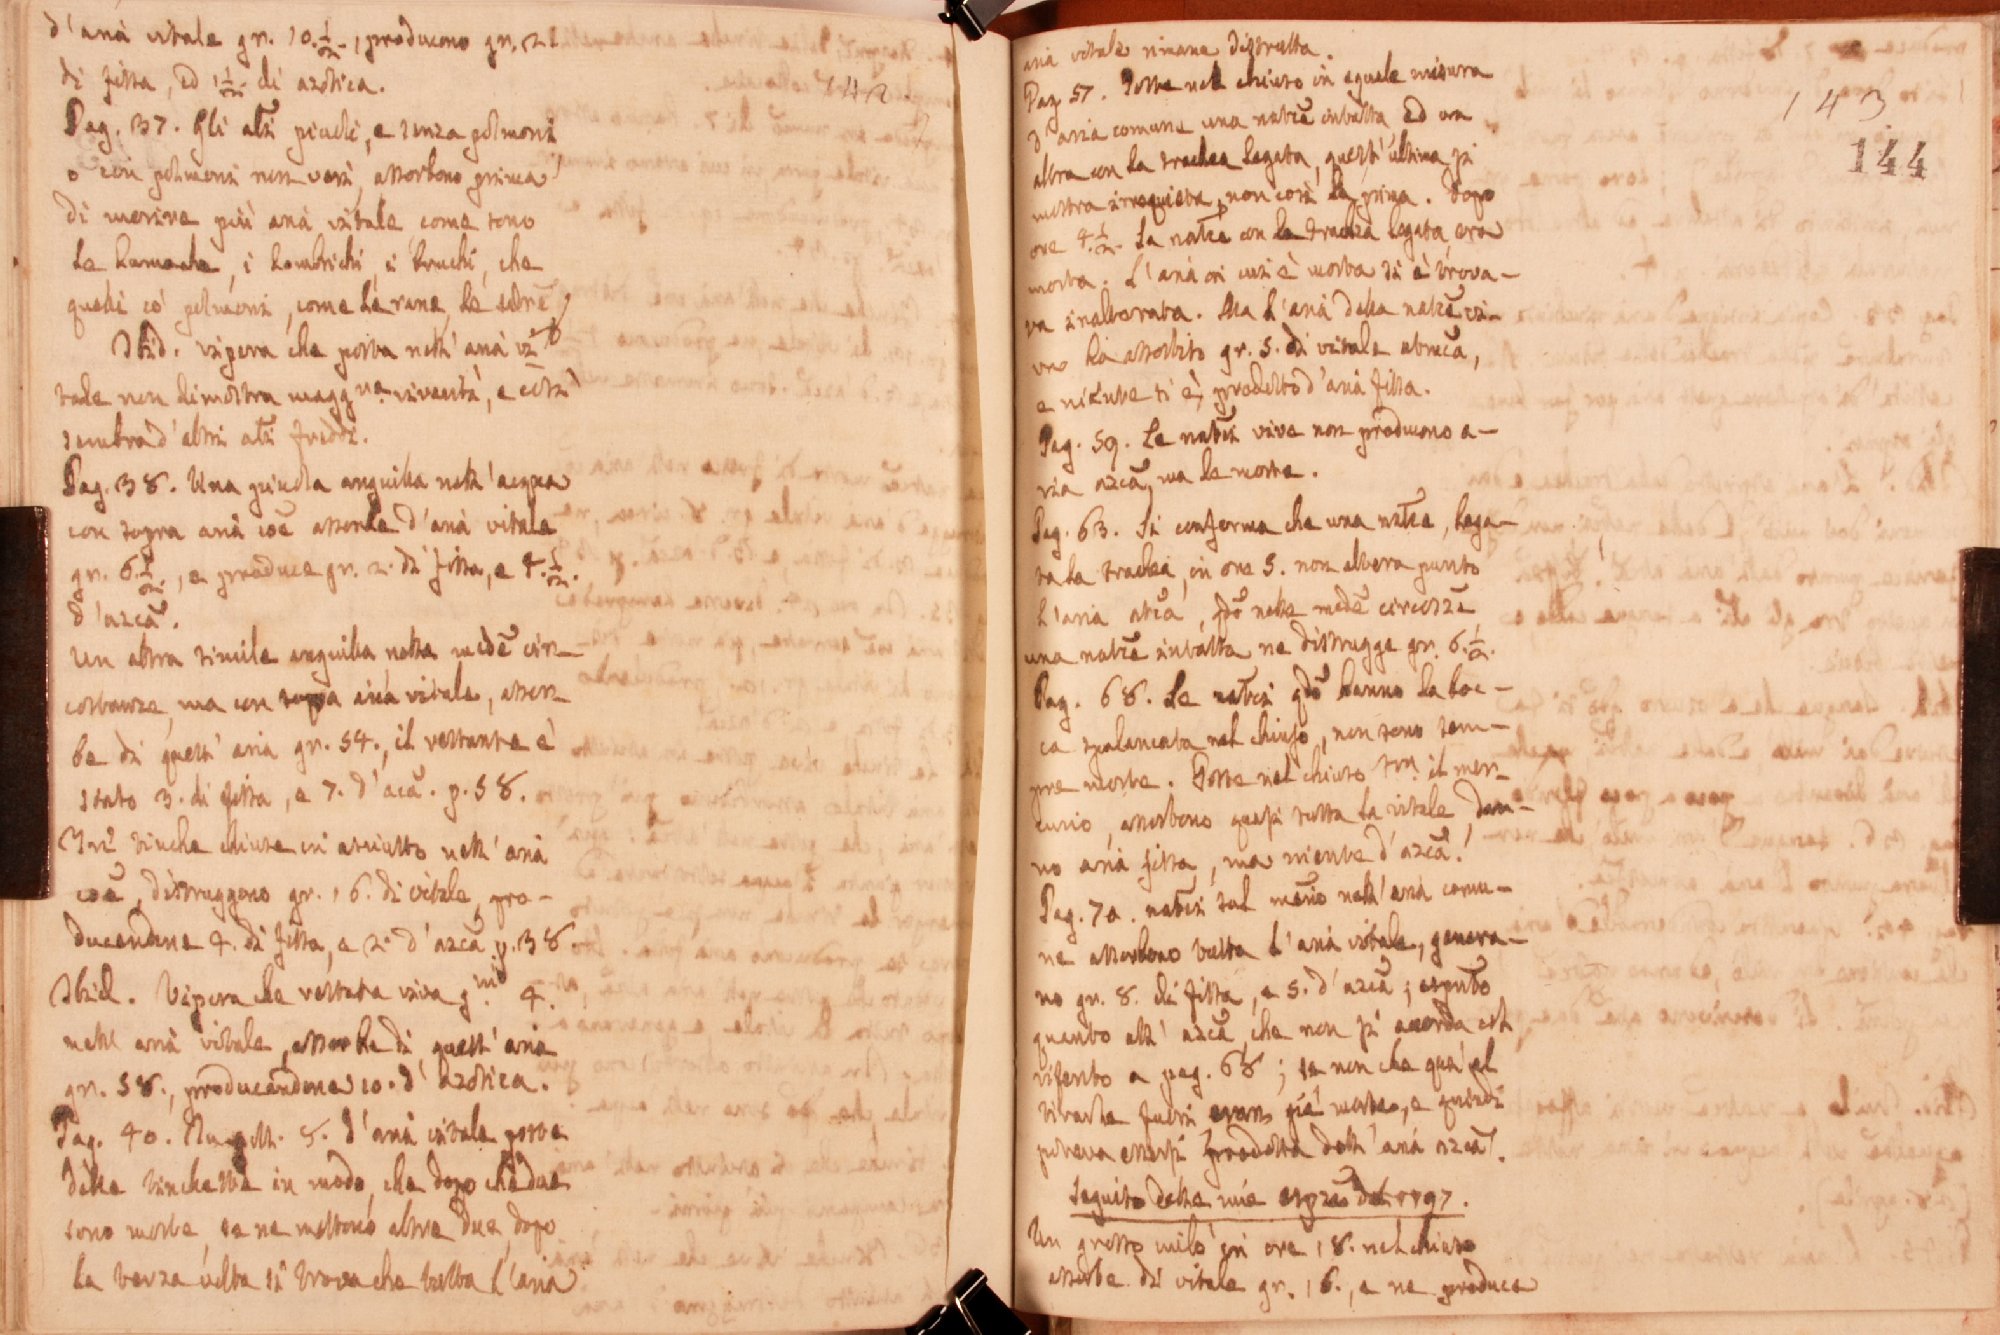 d'aria vitale gr. 10.½, producono gr. 2½
di fissa, ed 1½ di azotica.
142
Pag. 37. Gli ali piccoli, e senza polmoni
o con polmoni non veri, assorbono prima
di morire più aria vitale come sono
le lumache, i lombrichi, i bruchi, che
quelli co' polmoni, come le rane, le
Ibid. vipera che posta nell'aria vi-
tale non dimostra magg.re vivacità, e così
sembra d'altri ali freddi.
Pag. 38. Una piccola anguilla nell'acqua
con sopra aria coe assorbe d'aria vitale
gr. 6.½., e produce gr. 2. di fissa, e 4.½.
d'azca.
Un altra simile anguilla nelle mede cir-
costanze, ma con sopra aria vitale, assor-
be di quest'aria gr. 54., il restante è
stato 3. di fissa, e 7. d'aca. p. 58.
Tre tinche chiuse in asciutto nell'aria
coe, distruggono gr. 16. di vitale, pro-
ducendone 4. di fissa, e 2. d'azca p. 38.
Ibid. Vipera che restata viva g.ni 4.
nell'aria vitale, assorbe di quest'aria
gr. 58., producendone 10. d'azotica.
Pag. 40. In poll. 8. d'aria vitale poste
delle tinchette in modo, che dopo che due
sono morte, se ne mettono altre due, dopo
la terza volta si trova che tutta l'aria
aria vitale rimane distrutta.
143
144
Pag. 57. Poste nel chiuso in eguale misura
d'aria comune una natce intatta, ed un
altra con la trachea legata, quest'ultima si
mostra irrequieta, non così la prima. Dopo
ore 4.½. la natce con la trachea legata, era
morta. L'aria in cui è morta si è trova-
va inalterata. Ma l'aria della natce vi-
va ha assorbito gr. 5. di vitale
e niente si è prodotto d'aria fissa.
Pag. 59. Le natci vive non producono a-
ria azca, ma le morte.
Pag. 63. Si conferma che una natce, lega-
ta la trachea, in ore 5. non altera punto
l'aria atca, qdo nelle mede circosze
una natce intatta ne distrugge gr. 6.½.
Pag. 68. Le natci qdo hanno la boc-
ca spalancata nel chiuso, non sono sem-
pre morte. Poste nel chiuso sul il mer-
curio, assorbono quasi tutta la vitale, dan-
no aria fissa, ma niente d'azca.
Pag. 70. natci sul merio nell'aria comu-
ne assorbono tutta l'aria vitale, genera-
no gr. 8. di fissa, e 5. d'azca; risputo
quanto all'azca, che non si accorda col
riferito a pag. 68; se non che qua al
tirarle fuori erano già morte, e quindi
poteva essersi prodotta dell'aria azca.
Seguito delle mie espze del 1797.
Un grosso milo in ore 18. nel chiuso
assorbe di vitale gr. 16., e ne produce